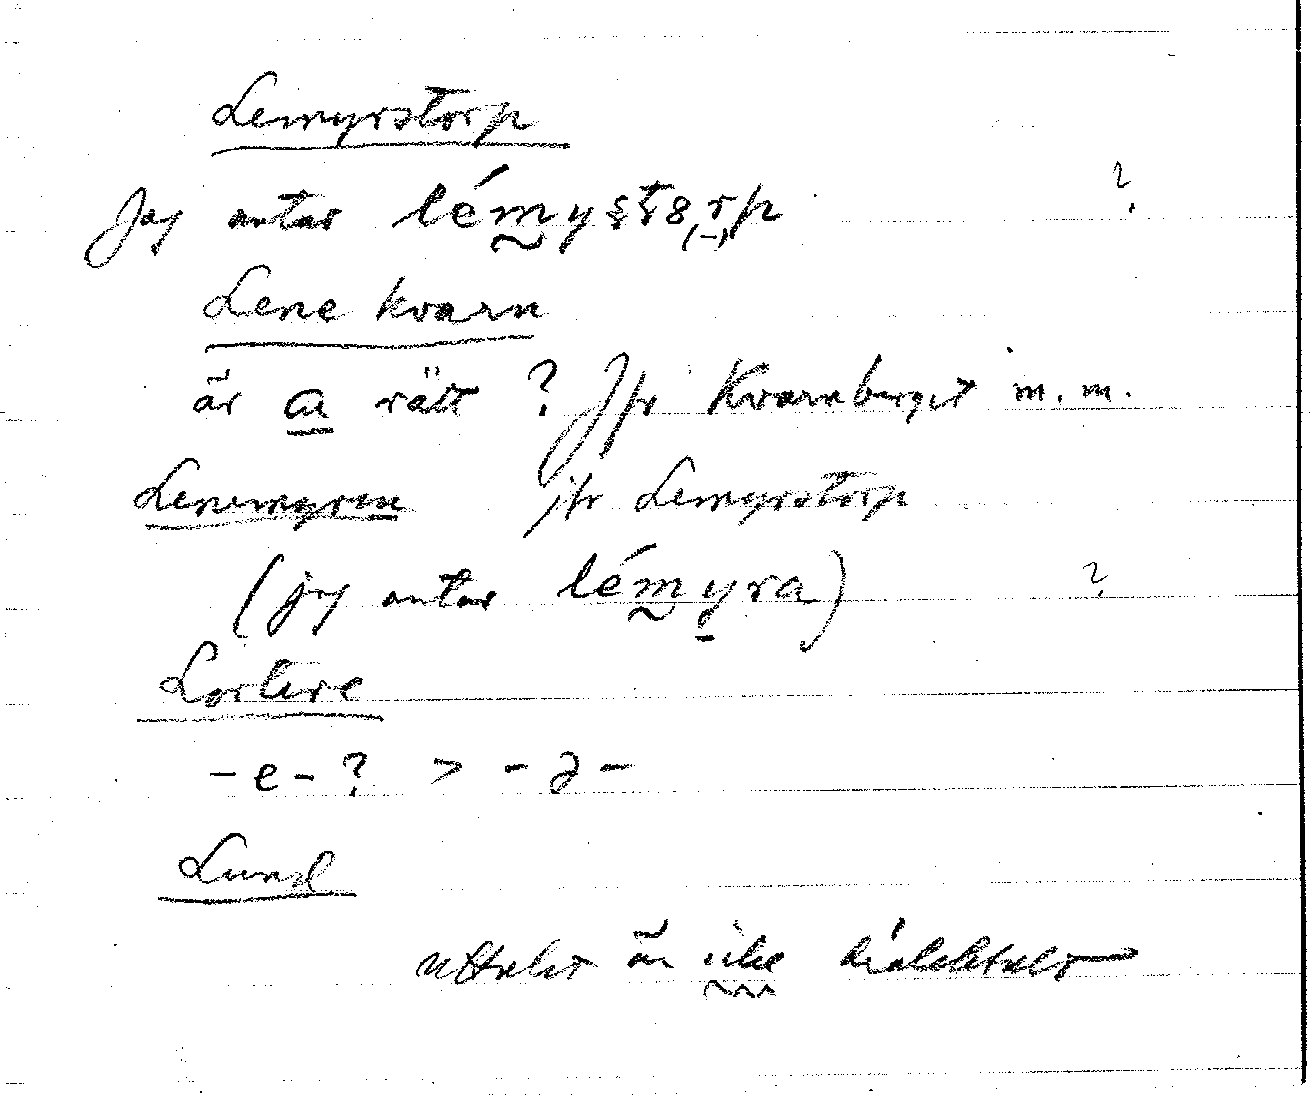 Lemyrstorp
Jag antar lémysts8rp ?
Lene kvarn
är a rätt ? Jfr Kvarnberget m.m.
Lenemyren jfr Lemyrstorp
(jag antar lémyra) ?
Lortere
-e-? > -ə-
Lund
uttalet är icke dialektalt